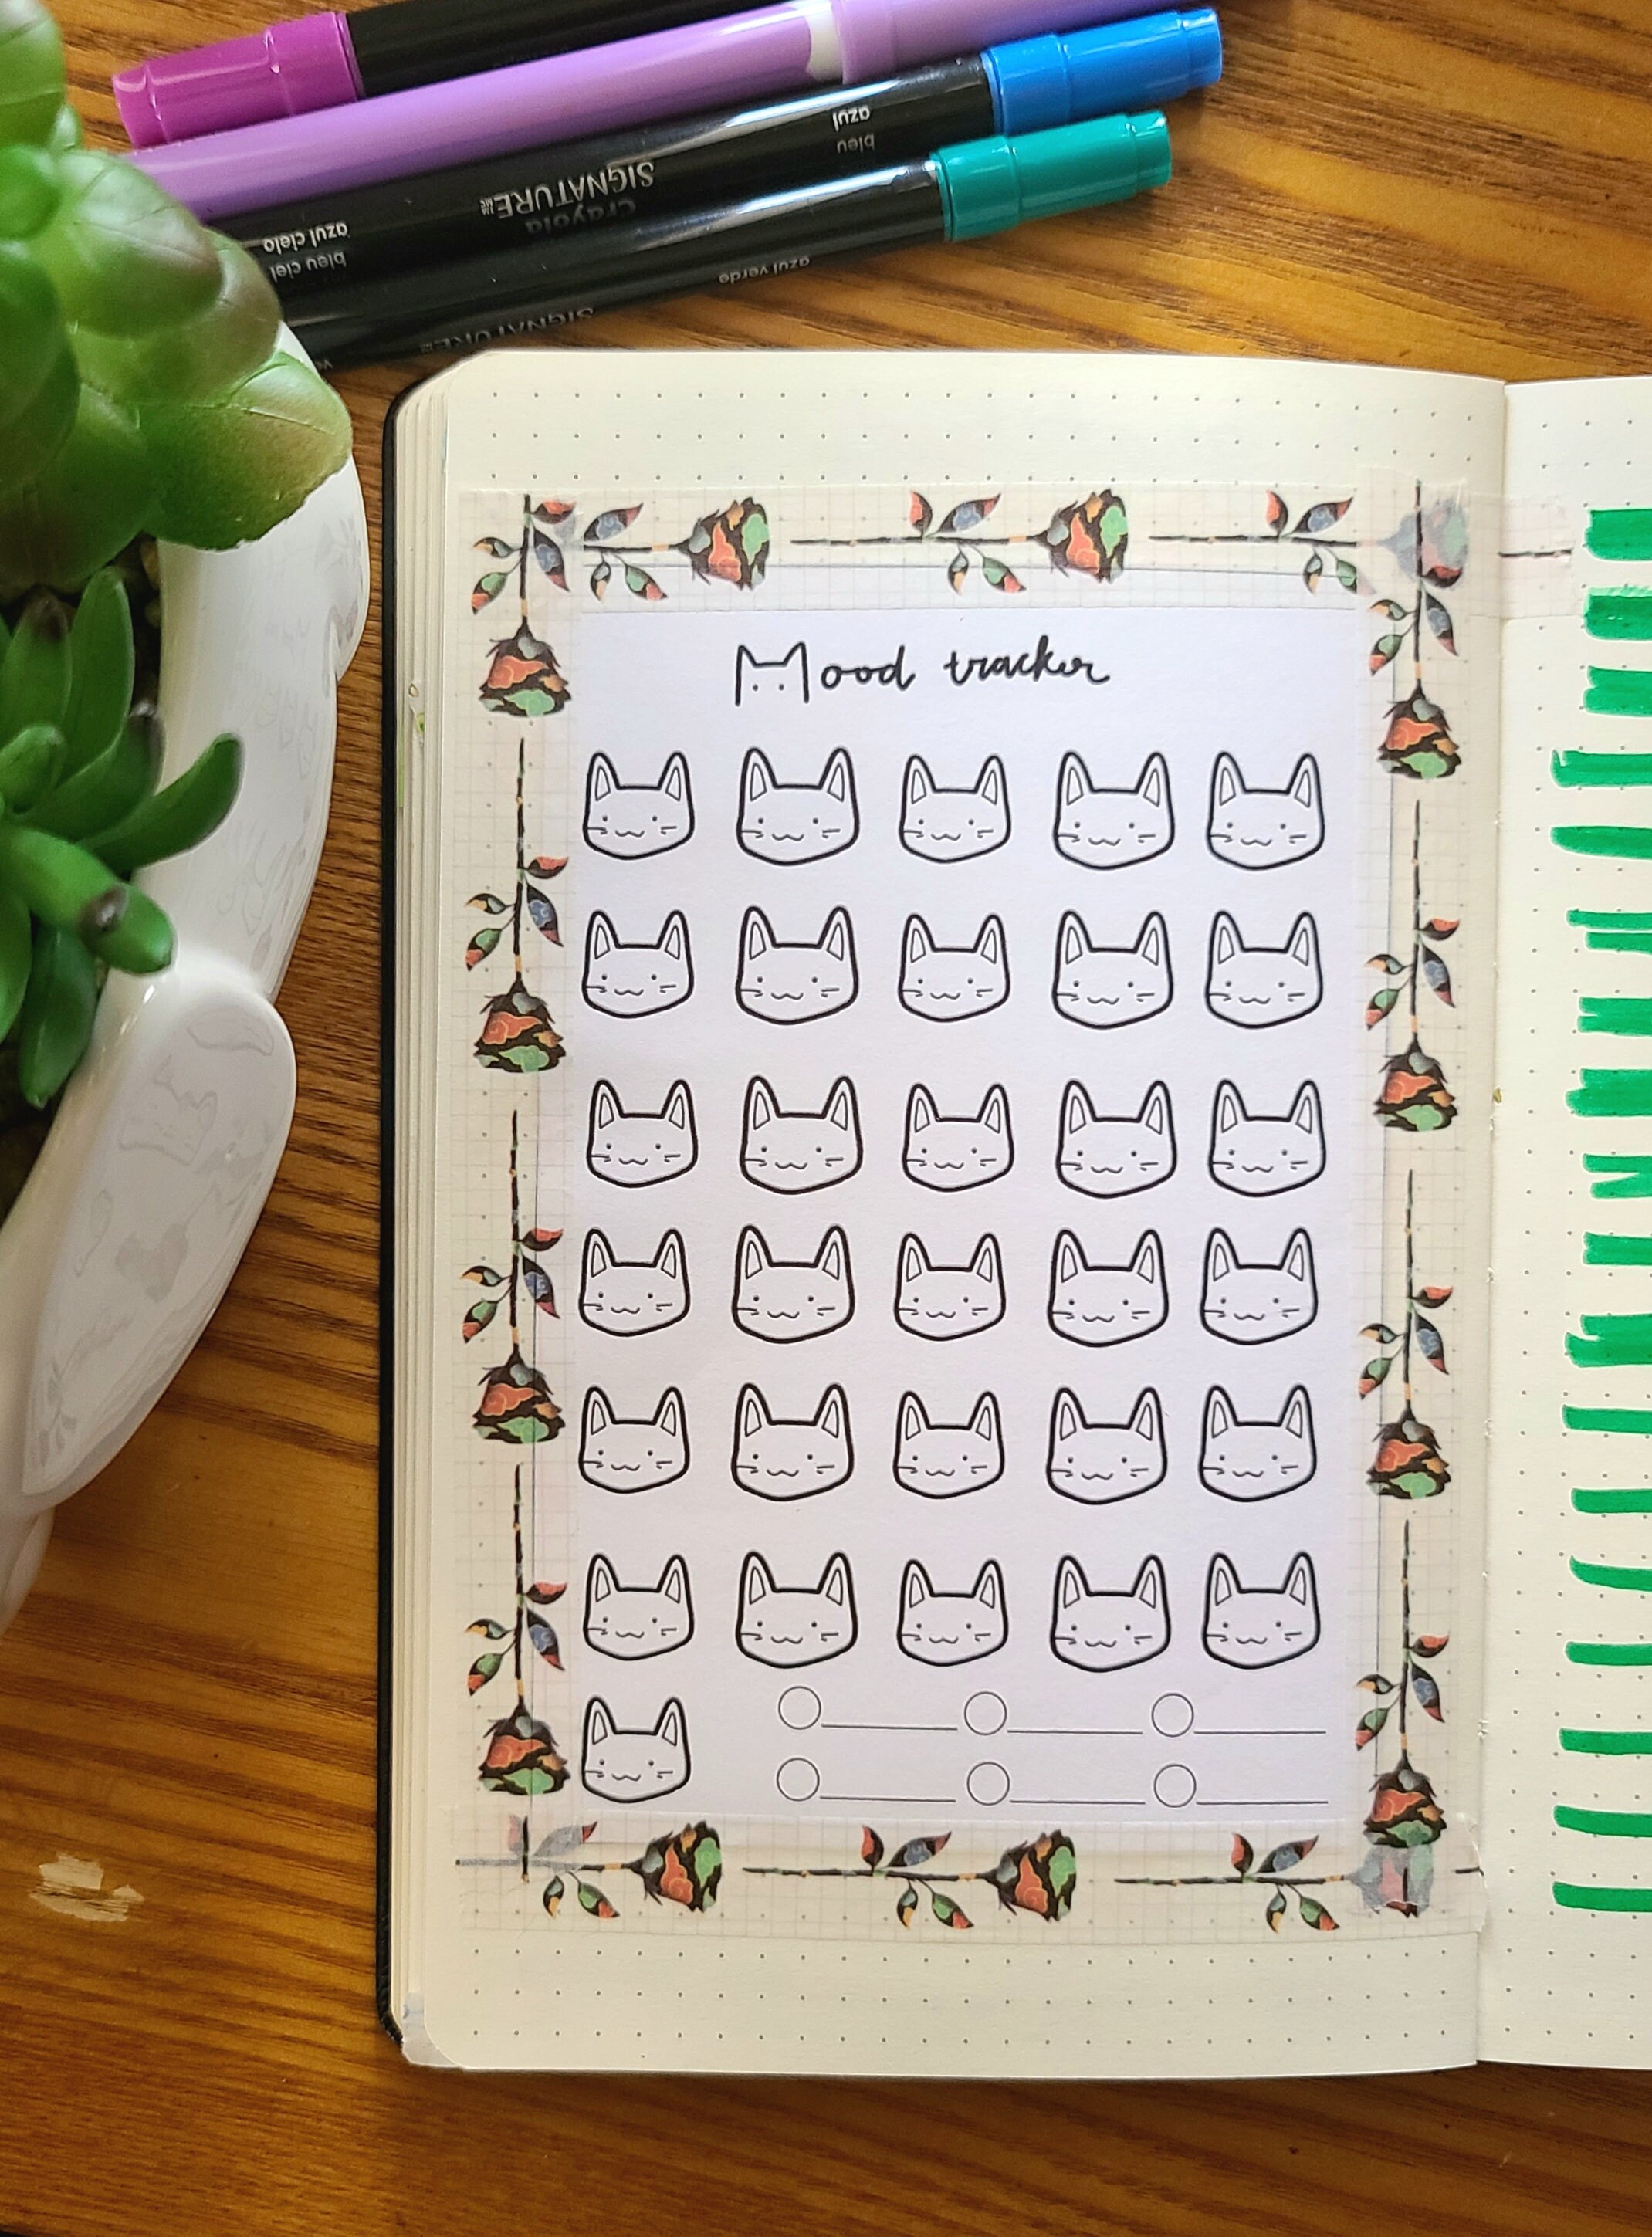 azul
bleu
crayola
SIGNATURE
azul cielo
bleu ciel
azul verde
SIGNATURE
Mood tracker